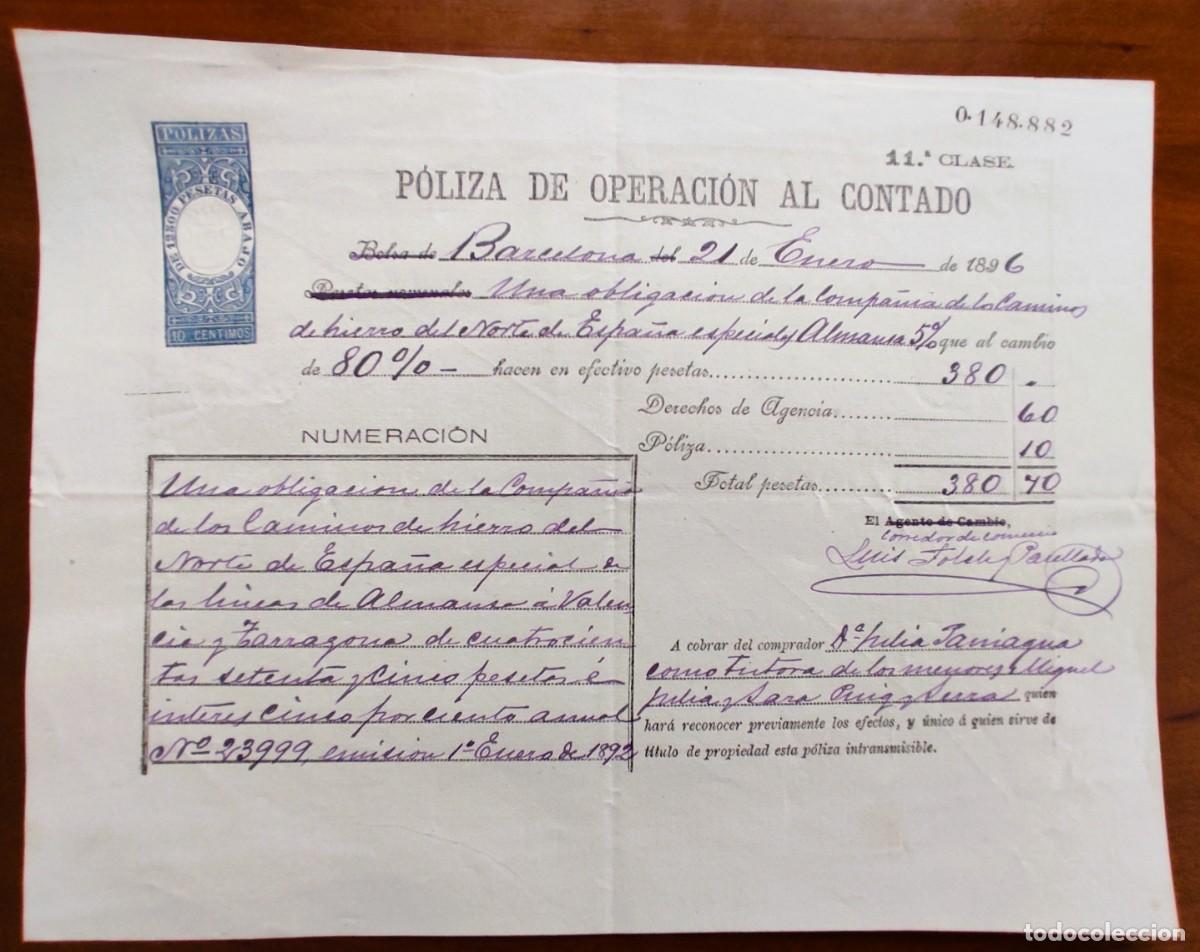 0.148.882
11.ª CLASE.
POLIZAS
DE 12500 PESETAS ABAJO
10 CENTIMOS
PÓLIZA DE OPERACIÓN AL CONTADO
Bolsa de Barcelona del 21 de Enero de 1896
Pesetas nominales Una obligacion de la Compañia de los Caminos
de hierro del Norte de España especiales Almansa 5% que al cambio
de 80% - hacen en efectivo pesetas 380 .
Derechos de Agencia 60
Póliza 10
Total pesetas 380 70
NUMERACIÓN
Una obligacion de la Compañia
de los Caminos de hierro del
Norte de España especial de
las lineas de Almansa á Valen
cia y Tarragona de cuatrocien
tas setenta y cinco pesetas é
interes cinco por ciento anual
Nº 23999, emision 1º Enero de 1892
El Agente de Cambio,
Corredor de comercio
Luis
A cobrar del comprador Dª Julia Paniagua
como tutora de los menores Miguel
Julia y Sara Puig y Serra quien
hará reconocer previamente los efectos, y único á quien sirve de
título de propiedad esta póliza intransmisible.
todocoleccion